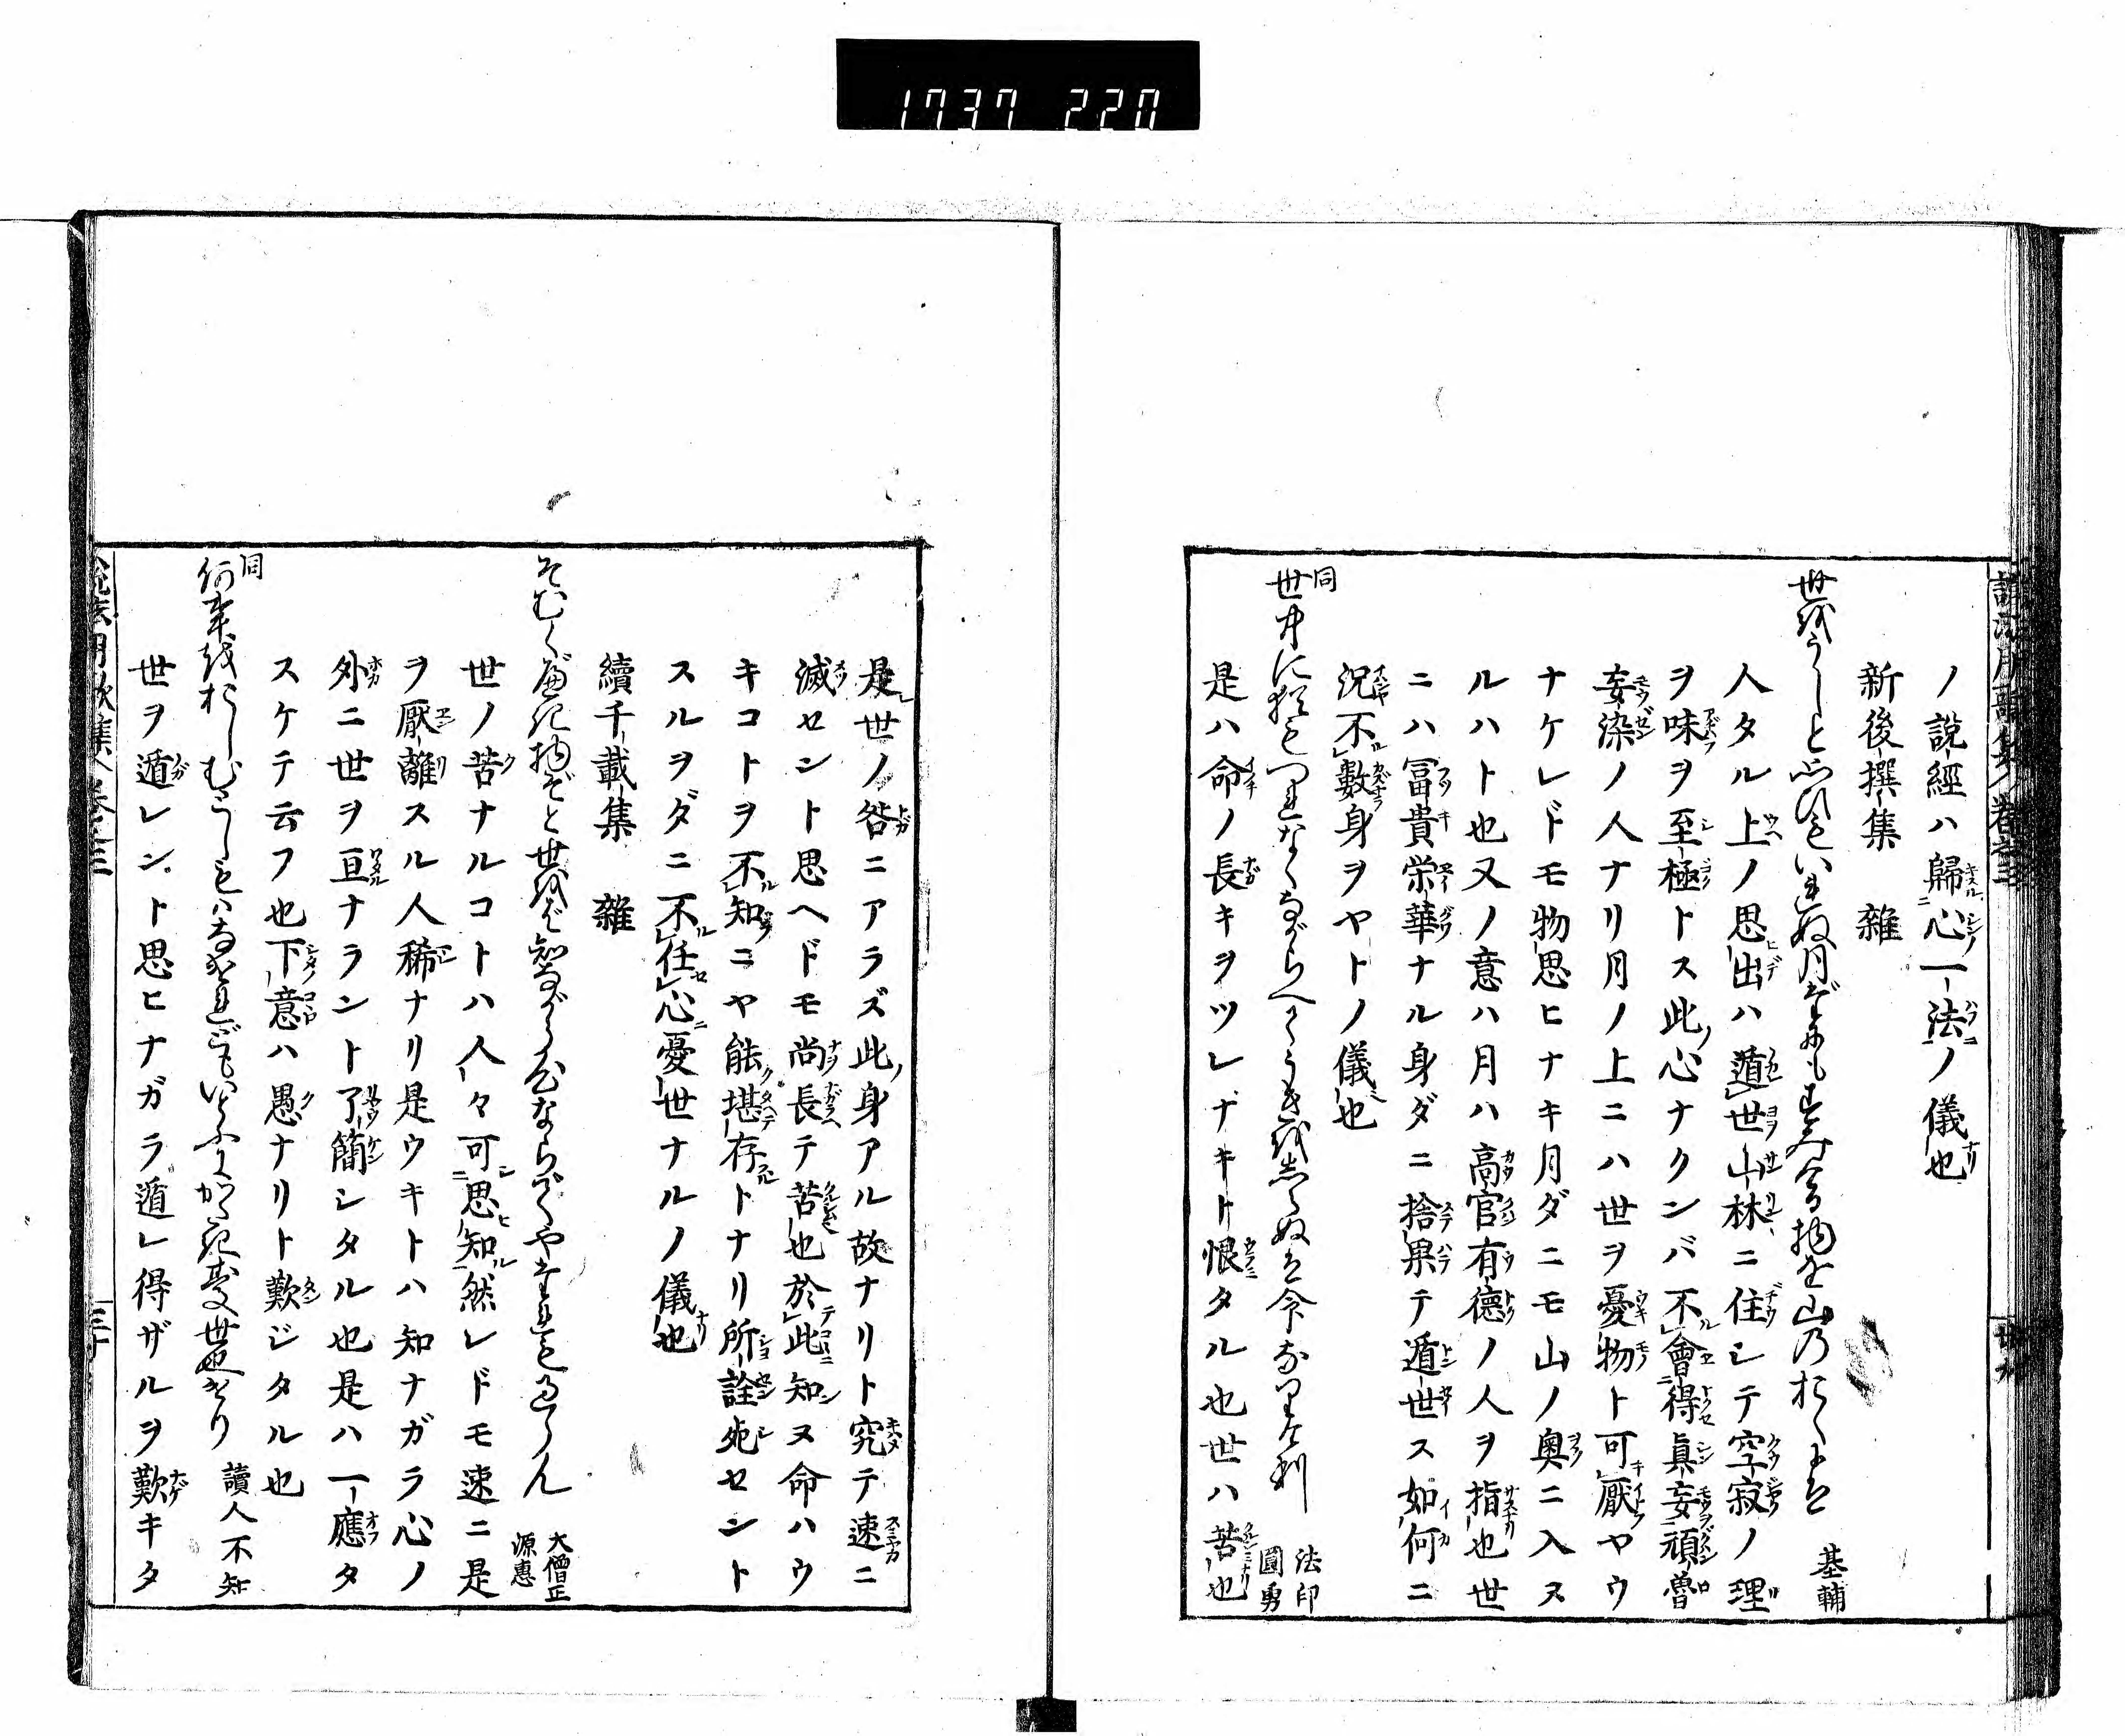 1737 220
ノ說經ハ歸心一法ノ儀也
新後撰集 雜
世をうしと思ひもいれぬ月だにもすみける物を山のおくには 基輔
人タル上ノ思出ハ遁世山林ニ住シテ空寂ノ理
ヲ味ヲ至極トス此心ナクンバ不會得眞妄頑魯
妄染ノ人ナリ月ノ上ニハ世ヲ憂物ト可厭ヤウ
ナケレドモ物思ヒナキ月ダニモ山ノ奥ニ入ヌ
ルハト也又ノ意ハ月ハ高官有德ノ人ヲ指也世
ニハ冨貴栄華ナル身ダニ捨果テ遁世ス如何ニ
況不數身ヲヤトノ儀也
同
世中に猶もつれなくながらへてうきをしらぬは命なりけり 法印圓勇
是ハ命ノ長キヲツレナキト恨タル也世ハ苦也
是世ノ咎ニアラズ此身アル故ナリト究テ速ニ
滅セント思ヘドモ尚長テ苦也於此知ヌ命ハウ
キコトヲ不知ニヤ能堪存トナリ所詮死セント
スルヲダニ不任心憂世ナルノ儀也
續千載集 雜
そむくべき物ぞと世をば知ながら心ならでやすまむとすらん 大僧正源惠
世ノ苦ナルコトハ人々可思知然レドモ速ニ是
ヲ厭離スル人稀ナリ是ウキトハ知ナガラ心ノ
外ニ世ヲ亘ナラント了簡シタル也是ハ一應タ
スケテ云フ也下意ハ愚ナリト歎ジタル也
同
何事をおしむとしもはなけれどもいとふにかたき憂世也けり 讀人不知
世ヲ遁レント思ヒナガラ遁レ得ザルヲ歎キタ